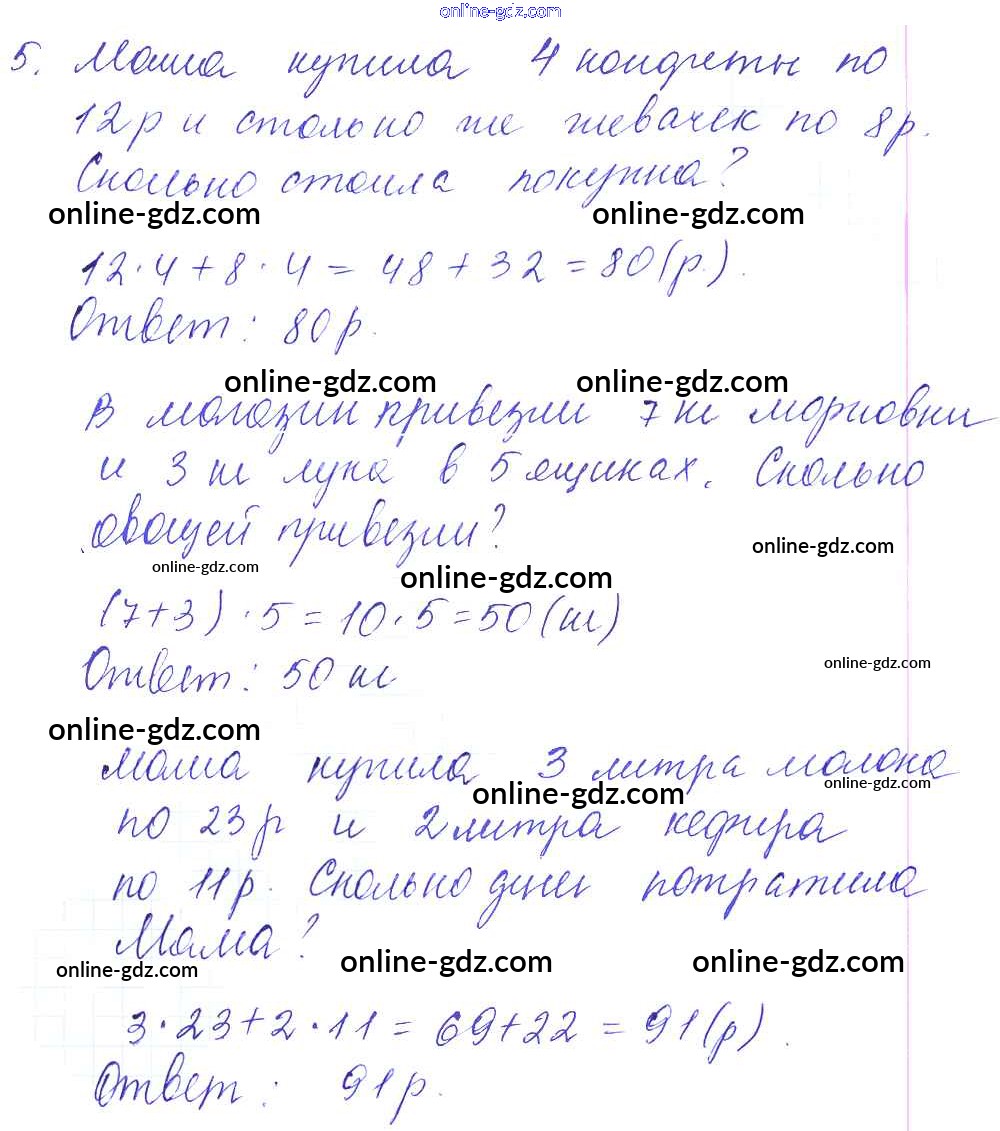 online-gdz.com
5. Маша купила 4 конфеты по
12р и столько же жевачек по 8р.
Сколько стоила покупка?
online-gdz.com online-gdz.com
12·4+8·4=48+32=80(р.).
Ответ: 80р.
online-gdz.com online-gdz.com
В магазин привезли 7кг морковки
и 3 кг лука в 5 ящиках. Сколько
овощей привезли?
online-gdz.com
online-gdz.com
online-gdz.com
(7+3)·5=10·5=50(кг)
Ответ: 50 кг
online-gdz.com
online-gdz.com
Мама купила 3 литра молока
online-gdz.com online-gdz.com
по 23р и 2 литра кефира
по 11р. Сколько денег потратила
Мама?
online-gdz.com online-gdz.com online-gdz.com
3·23+2·11=69+22=91(р).
Ответ: 91р.